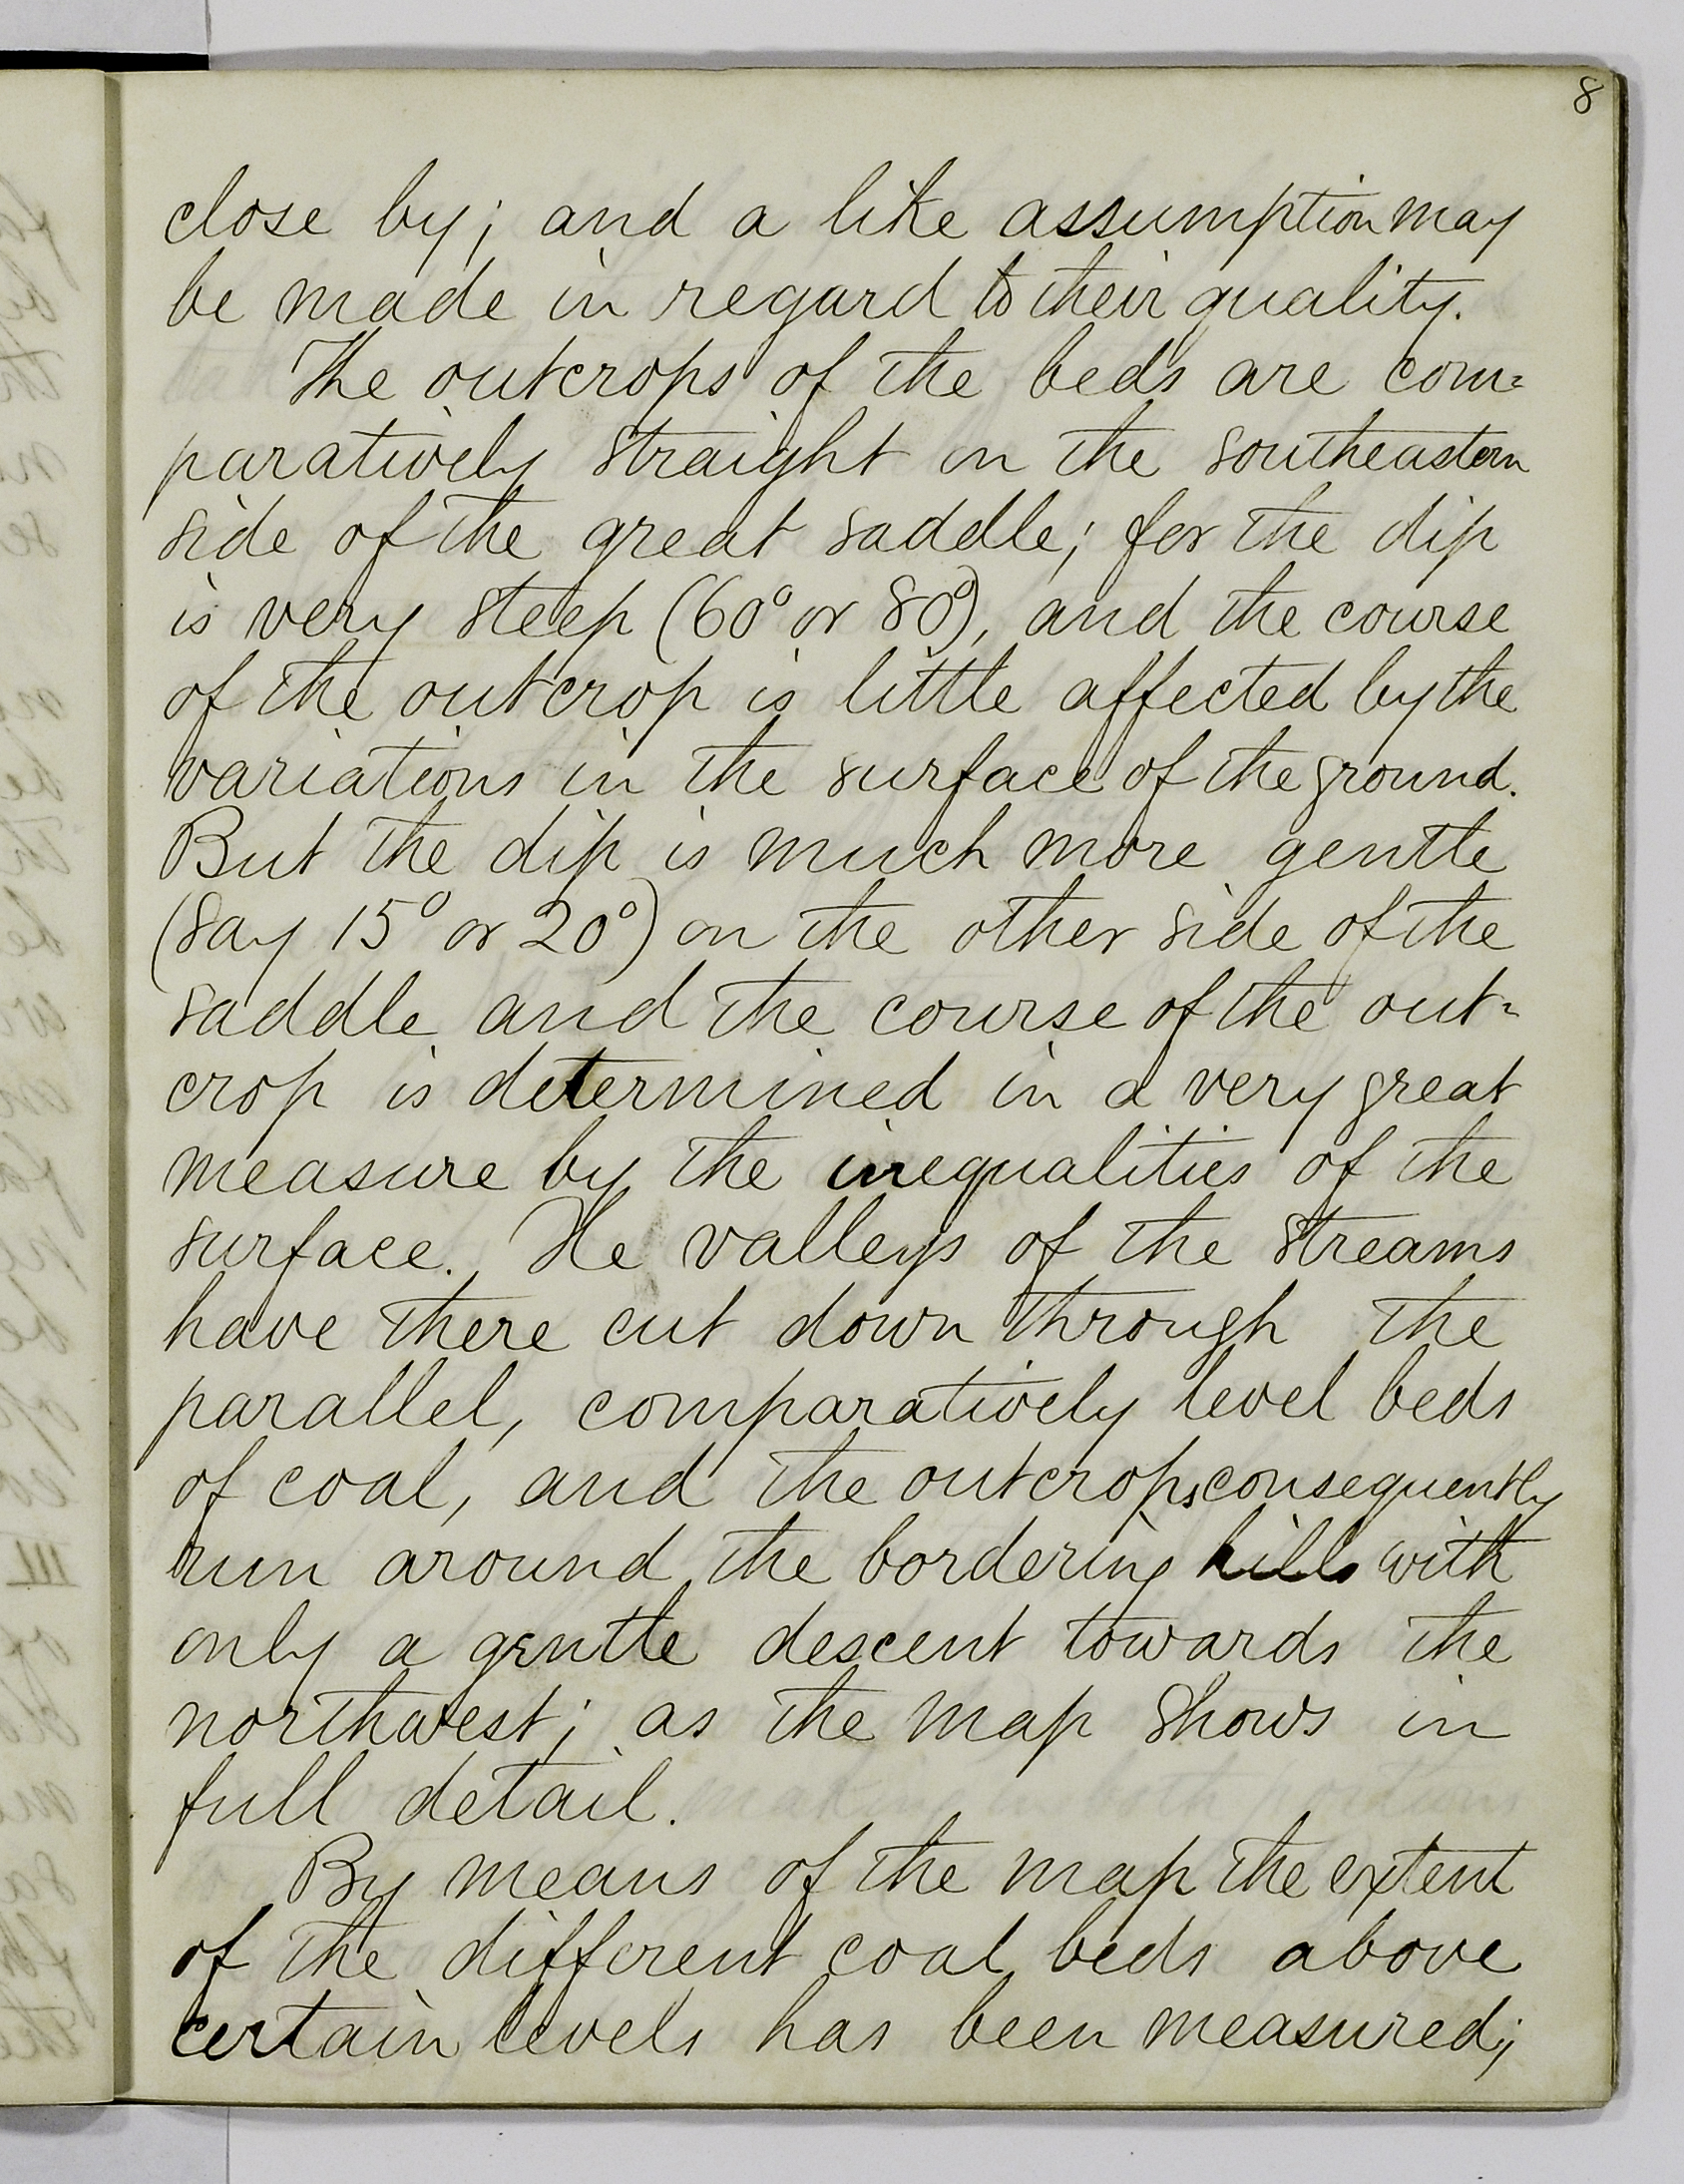 8
close by; and a like assumption may
be made in regard to their quality.
The outcrops of the beds are com=
paratively straight on the southeastern
side of the great saddle; for the dip
is very steep (60° or 80°), and the course
of the outcrop is little affected by the
variations in the surface of the ground.
But the dip is much more gentle
(say 15° or 20°) on the other side of the
saddle and the course of the out=
crop is determined in a very great
measure by the inequalities of the
surface. The valleys of the streams
have there cut down through the
parallel, comparatively level beds
of coal, and the outcrops consequently
run around the bordering hills with
only a gentle descent towards the
northwest; as the map shows in
full detail.
By means of the map the extent
of the different coal beds above
certain levels has been measured;